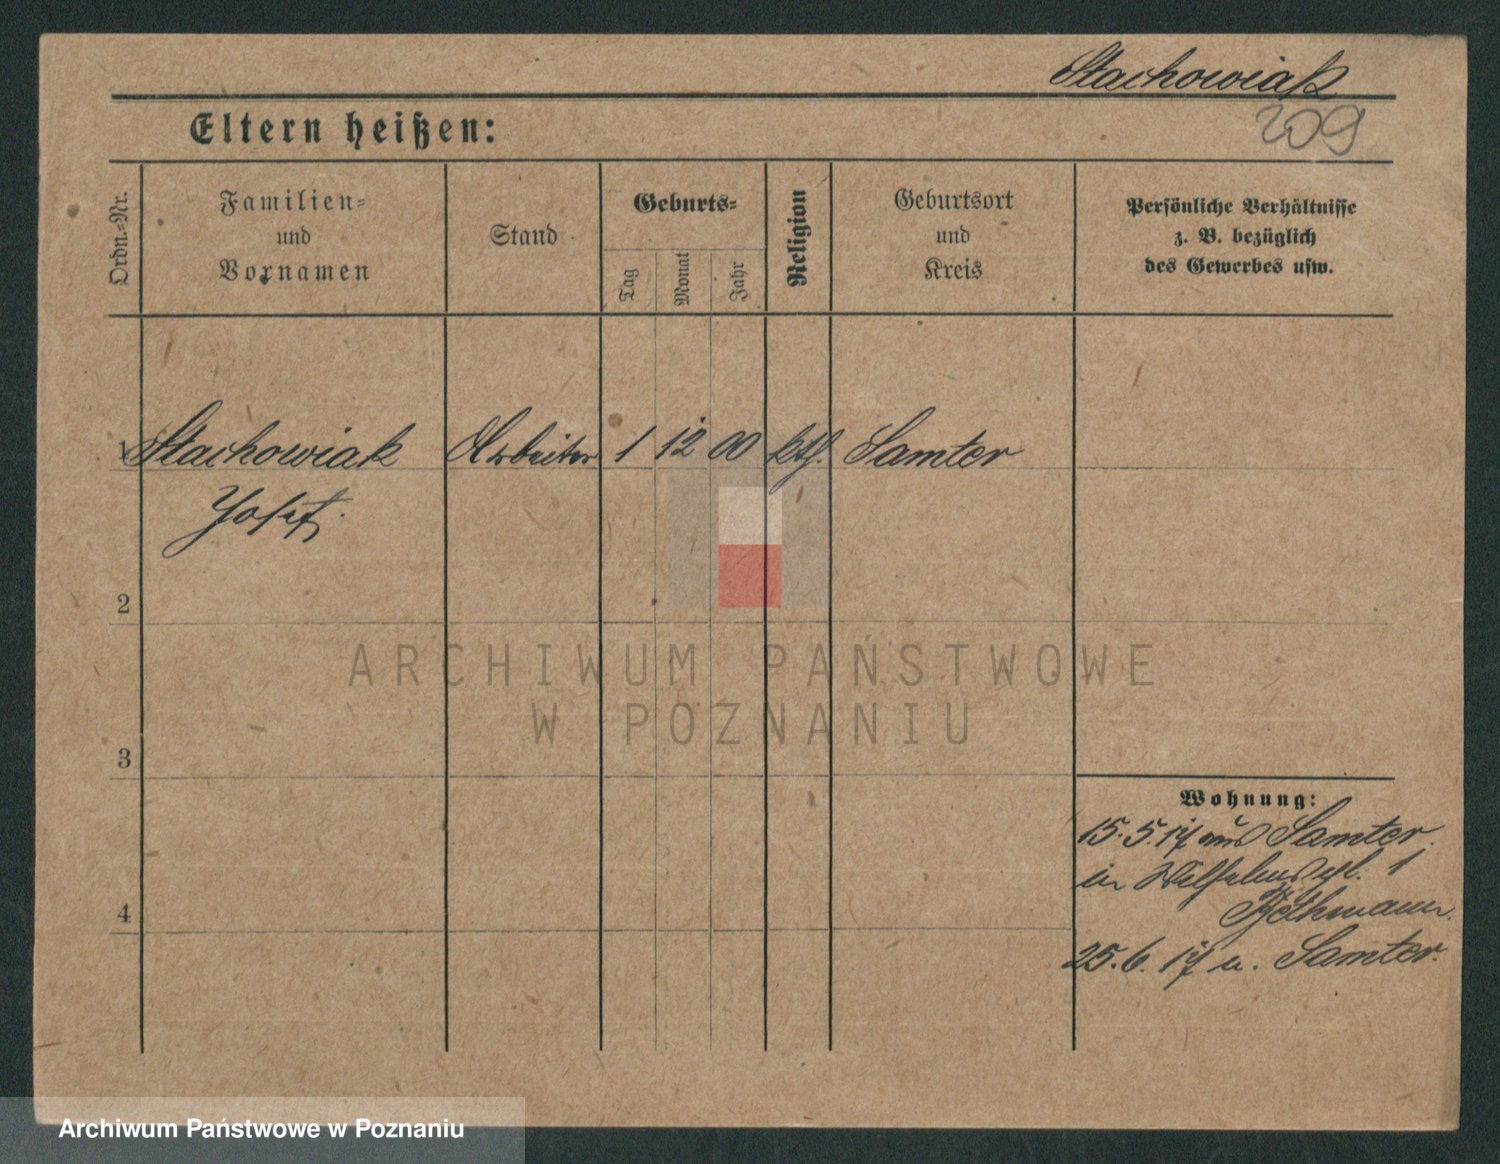 Stachowiak
209
Eltern heißen:
Ordn.=Nr.
Familien=
und
Vornamen
Stand
Geburts=
Tag
Monat
Jahr
Religion
Geburtsort
und
Kreis
Persönliche Verhältnisse
z. B. bezüglich
des Gewerbes usw.
1 Stachowiak Arbeiter 1 12 00 kth. Samter
Josef.
2
ARCHIWUM PAŃSTWOWE
W POZNANIU
3
Wohnung:
15.5.17 aus Samter.
in 1
Bethmann.
4
25.6.17 n. Samter.
Archiwum Państwowe w Poznaniu